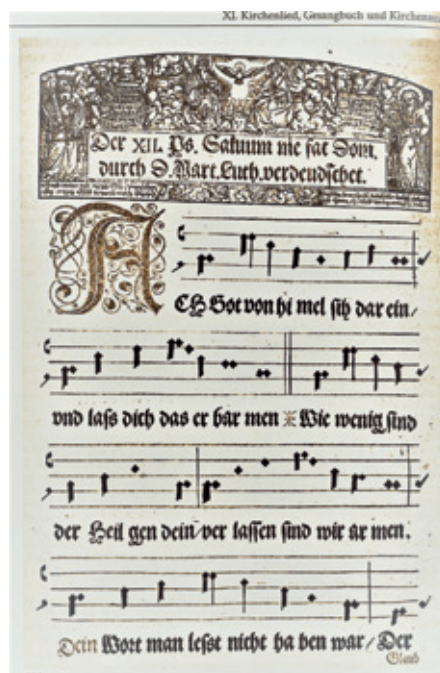 XI. Kirchenlied, Gesangbuch und Kirchenmu
Der XII. Ps. Saluum me fac Dom.
durch D. Mart. Luth. verdeudschet.
ACH Got von hi mel sih dar ein/
vnd lass dich das er bar men Wie wenig sind
der Heil gen dein/ ver lassen sind wir ar men.
Dein Wort man lesst nicht ha ben war/ Der
Glaub